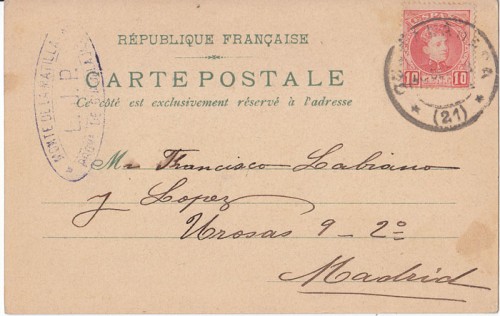 RÉPUBLIQUE FRANÇAISE
CARTE POSTALE
Ce côté est exclusivement réservé à l'adresse
MONTE DE LA MATILLA
L. J. P.
10 10
(21)
Mr Francisco Labiano
y Lopez
Urosas 9-2º
Madrid